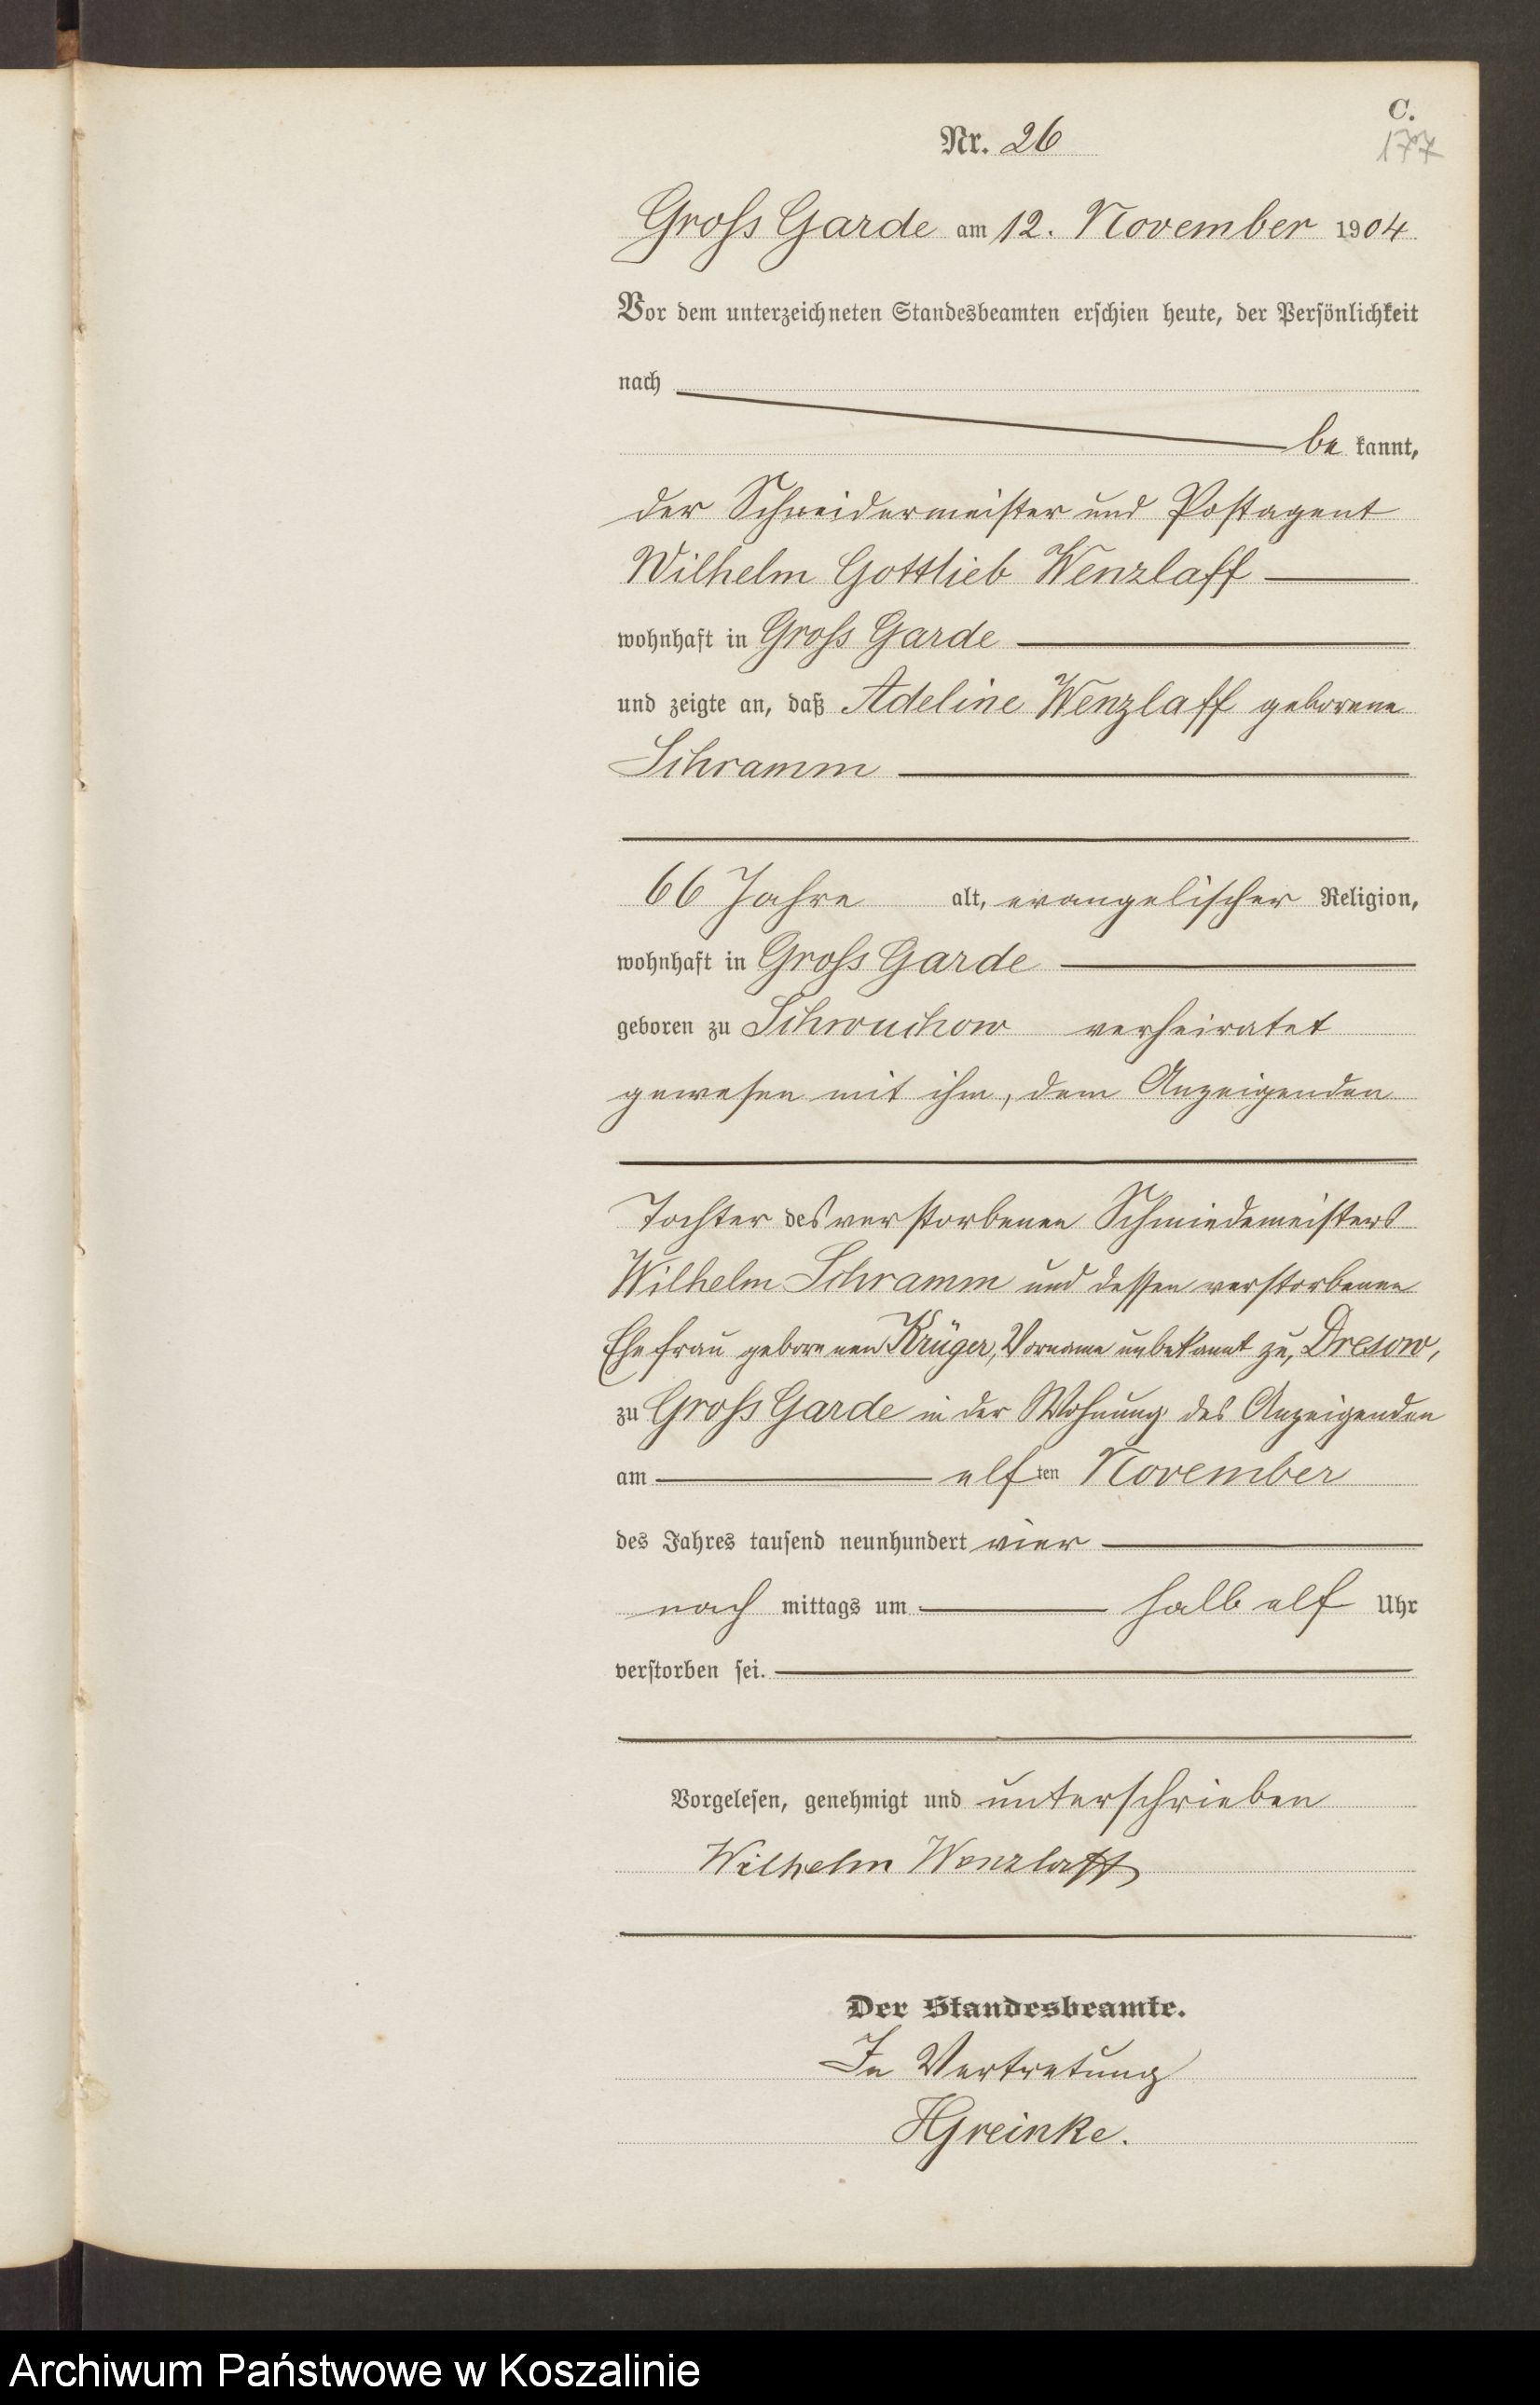 C.
177
Nr. 26
Gross Garde am 12. November 1904
Vor dem unterzeichneten Standesbeamten erschien heute, der Persönlichkeit
nach
be kannt,
der Schneidermeister und Postagent
Wilhelm Gottlieb Wenzlaff
wohnhaft in Gross Garde
und zeigte an, daß Adeline Wenzlaff geborene
Schramm
66 Jahre alt, evangelischer Religion,
wohnhaft in Gross Garde
geboren zu Schwuchow verheiratet
gewesen mit ihm, dem Anzeigenden
Tochter des verstorbenen Schmiedemeisters
Wilhelm Schramm und dessen verstorbenen
Ehefrau geborenen Krüger, Vorname unbekannt zu, Dresow,
zu Gross Garde in der Wohnung des Anzeigenden
am elf ten November
des Jahres tausend neunhundert vier
nach mittags um halb elf Uhr
verstorben sei.
Vorgelesen, genehmigt und unterschrieben
Wilhelm Wenzlaff
Der Standesbeamte.
In Vertretung
HGreinke.
Archiwum Państwowe w Koszalinie